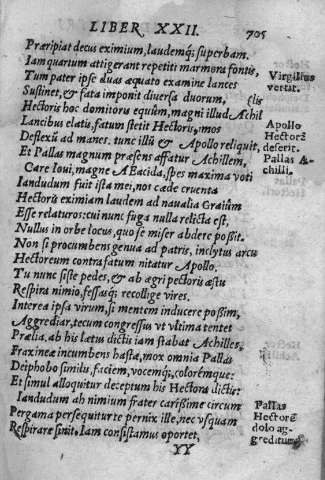 LIBER XXII. 705
Præripiat decus eximium, laudemq; superbam.
Iam quartum attigerant repetiti marmora fontis,
Tum pater ipse duas æquato examine lances
Sustinet, & fata imponit diuersa duorum, (lis
Hectoris hoc domitoris equûm, magni illud Achil
Lancibus elatis, fatum stetit Hectoris, imos
Deflexū ad manes. tunc illū & Apollo reliquit,
Et Pallas magnum præsens affatur Achillem,
Care Ioui, magne AEacida, spes maxima voti
Iandudum fuit ista mei, nos cæde cruenta
Hectoris eximiam laudem ad naualia Graiûm
Esse relaturos: cui nunc fuga nulla relicta est,
Nullus in orbe locus, quo se miser abdere possit.
Non si procumbens genua ad patris, inclytus arcu
Hectoreum contra fatum nitatur Apollo.
Tu nunc siste pedes, & ab ægri pectoris æstu
Respira nimio, fessasq; recollige vires.
Interea ipsa virum, si mentem inducere possim,
Aggrediar, tecum congressus vt vltima tentet
Prælia. ab his latus dictis iam stabat Achilles,
Fraxineæ incumbens hastæ, mox omnia Pallas
Deiphobo similu, faciem, vocemq;, colorémque:
Et simul alloquitur deceptum his Hectora dictis:
Iandudum ah nimium frater carissime circum
Pergama persequiturte pernix ille, nec vsquam
Respirare sinit. Iam consistamus oportet,
YY
Virgilius
vertit.
Apollo
Hectorē
deserit.
Pallas A-
chilli.
Pallas
Hectorē
dolo ag-
greditur.